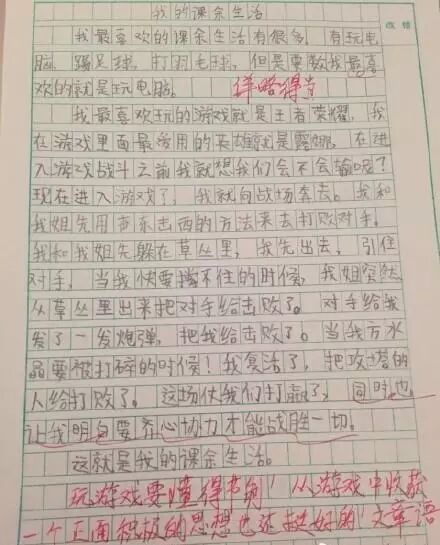 我的课余生活
改错
我最喜欢的课余生活有很多,有玩电
脑,踢足球,打羽毛球,但是要数我最喜
欢的就是玩电脑。
详略得当
我最喜欢玩的游戏就是王者荣耀,我
在游戏里面最爱用的英雄就是露娜,在进
入游戏战斗之前我就想我们会不会输呢?
现在进入游戏了,我就向战场奔去。我和
我姐先用声东击西的方法来去打败对手。
我和我姐先躲在草丛里,我先出去,引住
对手,当我快要挡不住的时候,我姐突然
从草丛里出来把对手给击败了。对手给我
发了一发炮弹,把我给击败了。当我方水
晶要被打碎的时候!我复活了,把攻塔的
人给打败了。这场仗我们打赢了,同时也
让我明白要齐心协力才能战胜一切。
这就是我的课余生活。
玩游戏要懂得节制!从游戏中收获
一个正面积极的思想也还挺好的!文章语